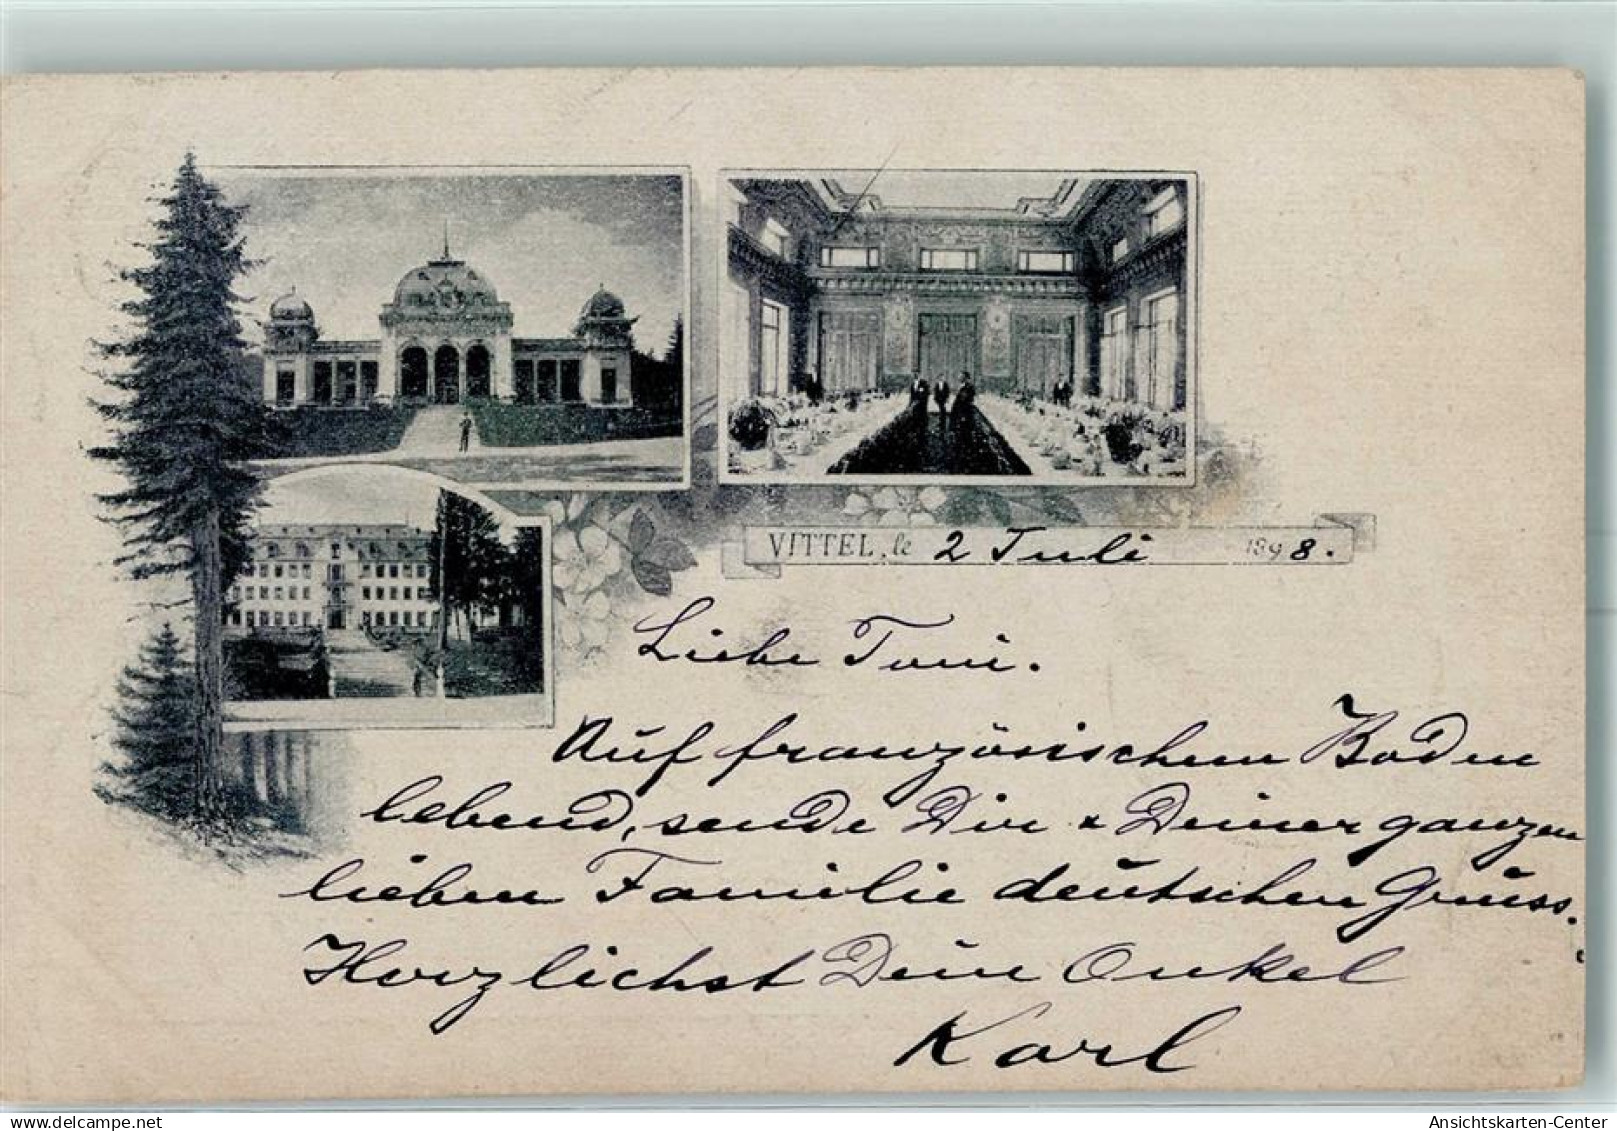 VITTEL, le 2 Juli 1898.
Liebe Toni.
Auf französischem Boden
lebend, sende Dir & Deiner ganzen
lieben Familie deutschen Gruss.
Herzlichst Dein Onkel
Karl
delcampe.net
Ansichtskarten-Center